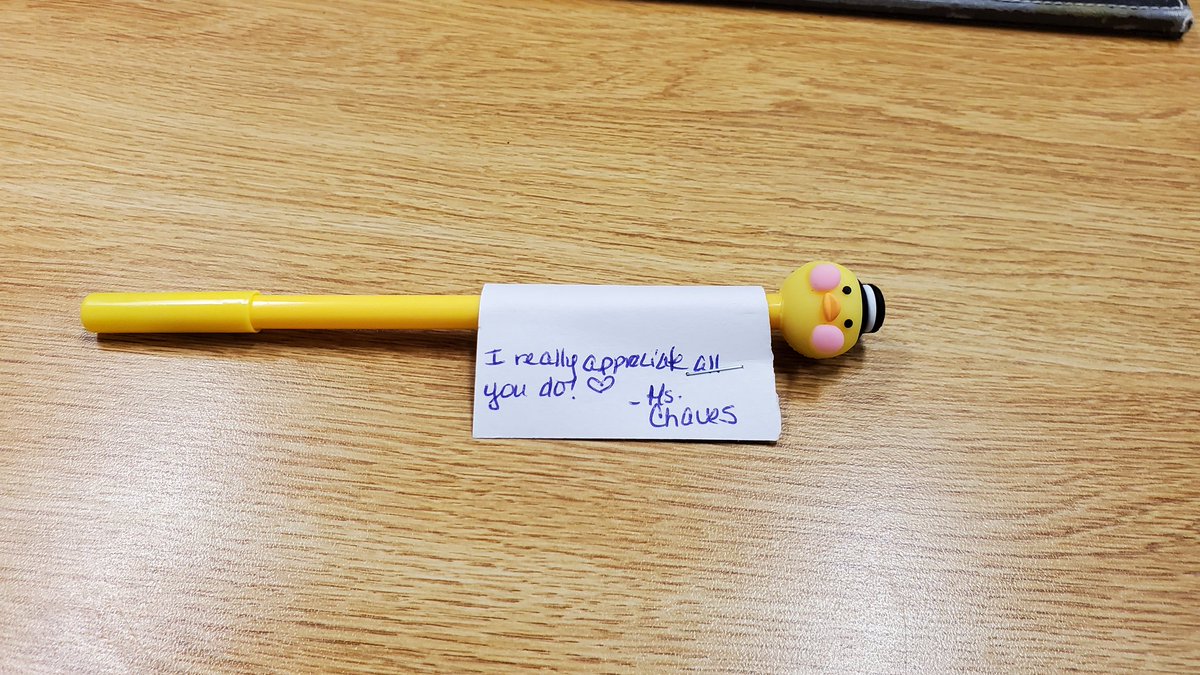 I really appreciate all
you do! ♡
- Ms.
Chaves